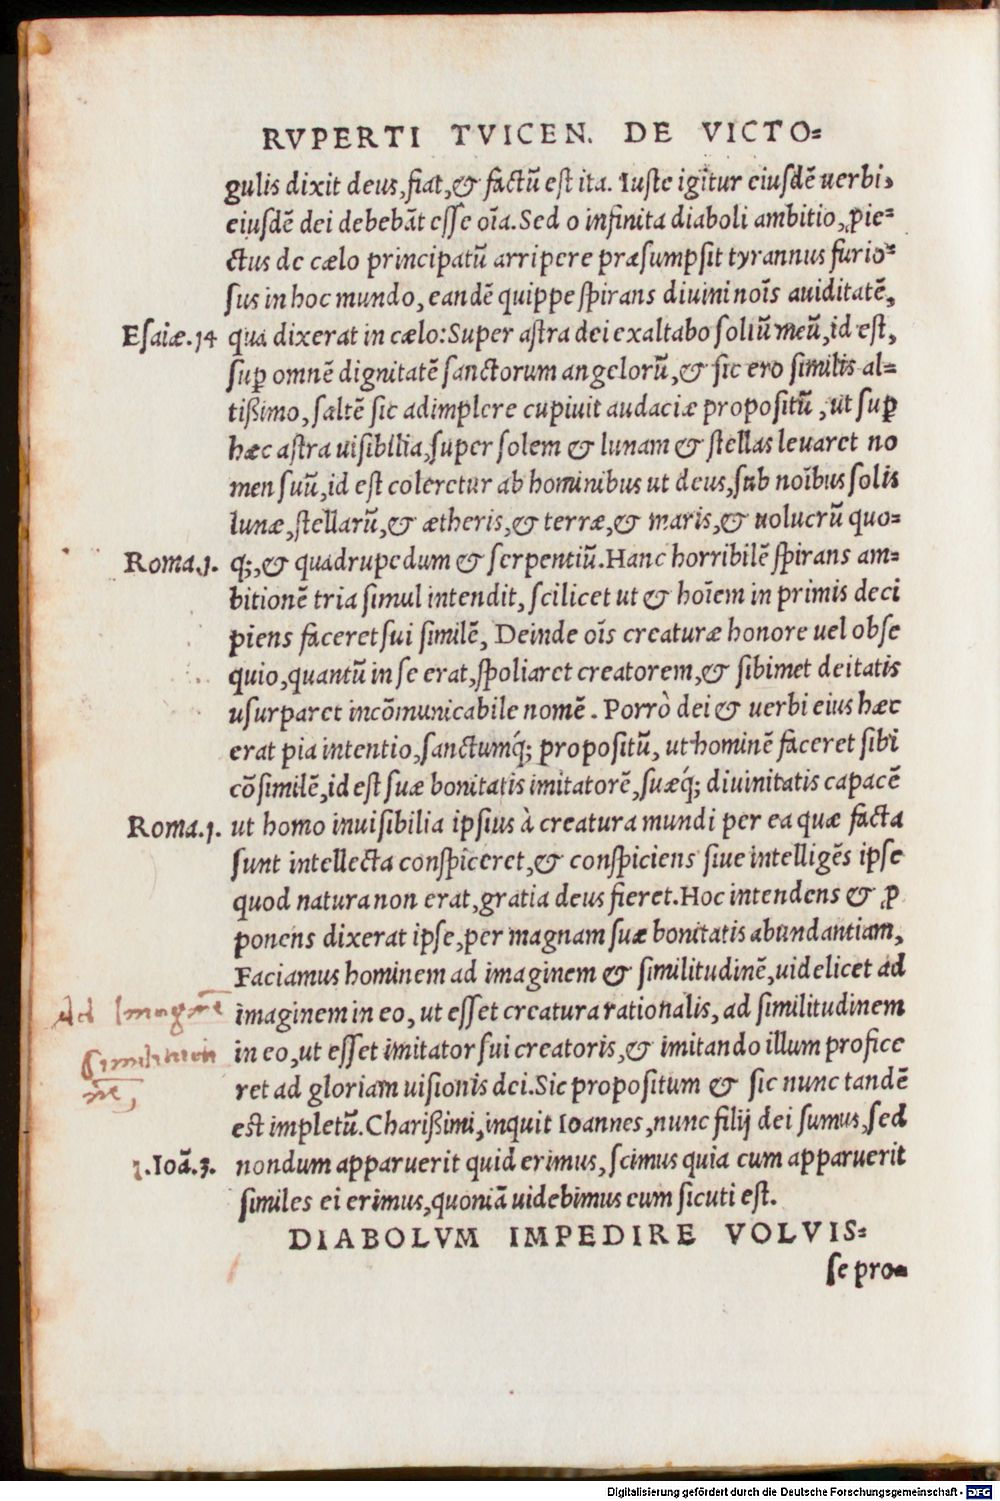 RVPERTI TVICEN. DE VICTO=
gulis dixit deus, fiat, & factū est ita. Iuste igitur eiusdē uerbi,
eiusdē dei debebāt esse oīa. Sed o infinita diaboli ambitio, ꝓie=
ctus de cælo principatū arripere præsumpsit tyrannus furio=
sus in hoc mundo, eandē quippe spirans diuini noīs auiditatē,
Esaiæ.14 qua dixerat in cælo: Super astra dei exaltabo soliū meū, id est,
suꝑ omnē dignitatē sanctorum angelorū, & sic ero similis al=
tißimo, saltē sic adimplere cupiuit audaciæ propositū, ut suꝑ
hæc astra uisibilia, super solem & lunam & stellas leuaret no
men suū, id est coleretur ab hominibus ut deus, sub noībus solis
lunæ, stellarū, & ætheris, & terræ, & maris, & uolucrū quo=
Roma.1. q;, & quadrupedum & serpentiū. Hanc horribilē spirans am=
bitionē tria simul intendit, scilicet ut & hoīem in primis deci
piens faceret sui similē, Deinde oīs creaturæ honore uel obse
quio, quantū in se erat, spoliaret creatorem, & sibimet deitatis
usurparet incōmunicabile nomē. Porrò dei & uerbi eius hæc
erat pia intentio, sanctumq́; propositū, ut hominē faceret sibi
cōsimilē, id est suæ bonitatis imitatorē, suæq́; diuinitatis capacē
Roma.1. ut homo inuisibilia ipsius à creatura mundi per ea quæ facta
sunt intellecta conspiceret, & conspiciens siue intelligēs ipse
quod natura non erat, gratia deus fieret. Hoc intendens & ꝓ
ponens dixerat ipse, per magnam suæ bonitatis abundantiam,
Faciamus hominem ad imaginem & similitudinē, uidelicet ad
Ad Imaginē imaginem in eo, ut esset creatura rationalis, ad similitudinem
in eo, ut esset imitator sui creatoris, & imitando illum profice
ret ad gloriam uisionis dei. Sic propositum & sic nunc tandē
est impletū. Charißimi, inquit Ioannes, nunc filij dei sumus, sed
1.Ioā.3. nondum apparuerit quid erimus, scimus quia cum apparuerit
similes ei erimus, quoniā uidebimus eum sicuti est.
DIABOLVM IMPEDIRE VOLVIS=
se pro=
Digitalisierung gefördert durch die Deutsche Forschungsgemeinschaft - DFG